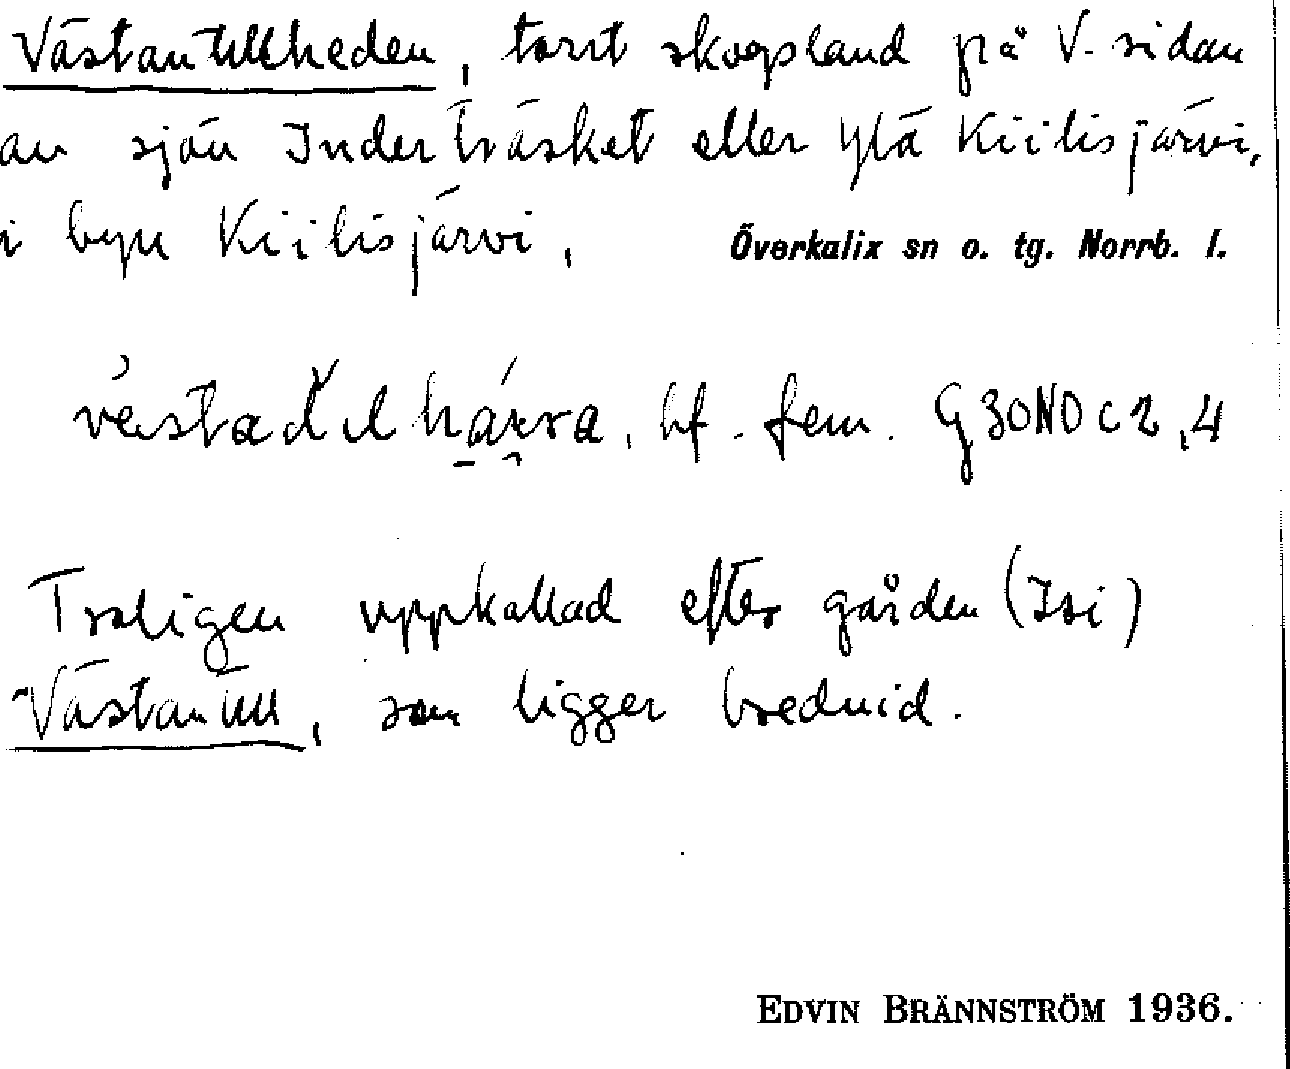 Västantillheden, torrt skogsland på V-sidan
av sjön Inderträsket eller Ylä Kiilisjärvi,
i byn Kiilisjärvi, Överkalix sn o. tg. Norrb. l.
bf. fem. G30NOc2,4
Troligen uppkallad efter gården (Isi)
Västantill, som ligger bredvid.
EDVIN BRÄNNSTRÖM 1936.